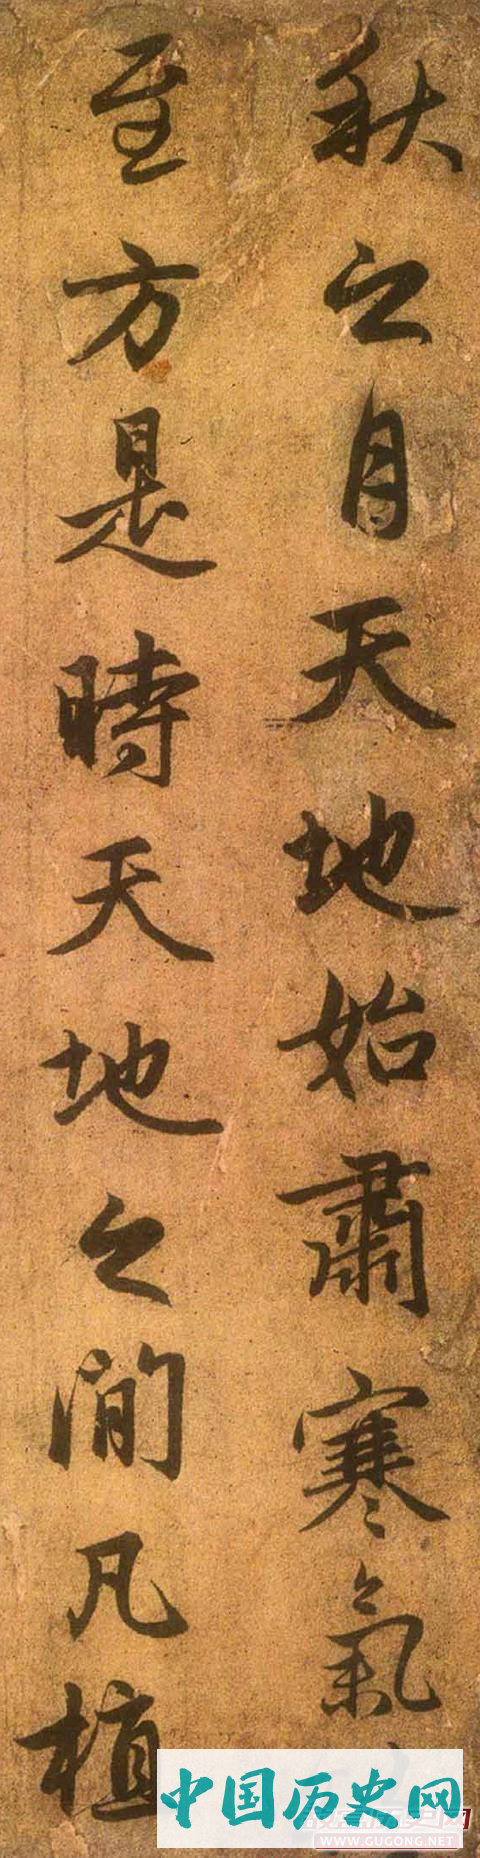 秋之月天地始肅寒氣
至方是時天地之間凡植
中国历史网
WWW.GUGONG.NET